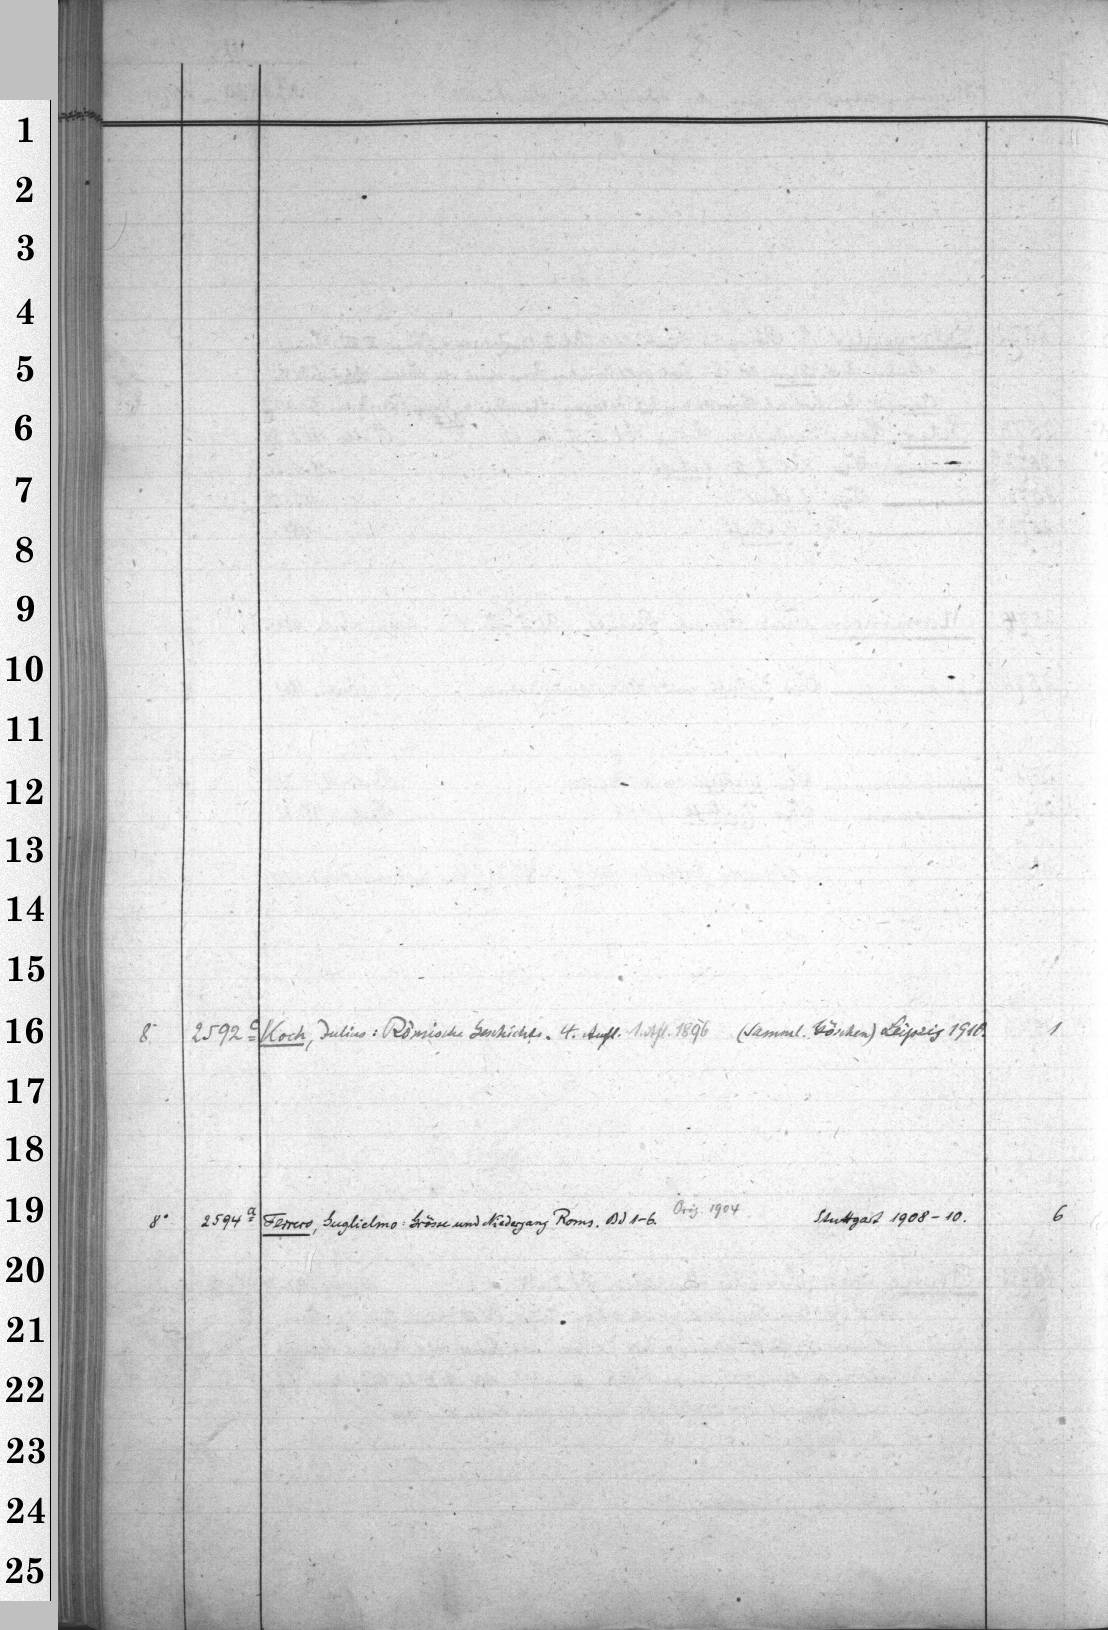 1
2
3
4
5
6
7
8
9
10
11
12
13
14
15
16
8° 2592 c Koch, Julius: Römische Geschichte. 4. Aufl. 1. Afl. 1896 (Samml. Göschen) Leipzig 1910. 1
17
18
19
8° 2594 a Ferrero, Guglielmo: Grösse und Niedergang Roms. Bd 1-6. Orig 1904 Stuttgart 1908-10. 6
20
21
22
23
24
25